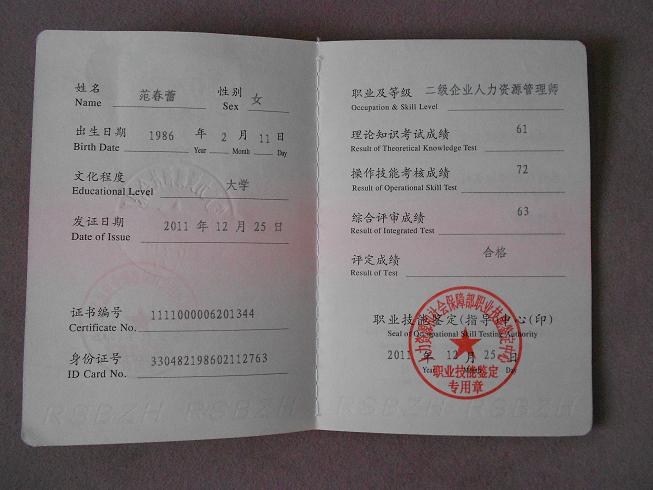 姓名 范春蕾 性别 女
Name Sex
出生日期 1986 年 2 月 11 日
Birth Date Year Month Day
文化程度 大学
Educational Level
发证日期 2011 年 12 月 25 日
Date of Issue
证书编号 1111000006201344
Certificate No.
身份证号 330482198602112763
ID Card No.
RSBZH RSBZH
职业及等级 二级企业人力资源管理师
Occupation & Skill Level
理论知识考试成绩 61
Result of Theoretical Knowledge Test
操作技能考核成绩 72
Result of Operational Skill Test
综合评审成绩 63
Result of Integrated Test
评定成绩 合格
Result of Test
职业技能鉴定(指导)中心(印)
Seal of Occupational Skill Testing Authority
2011 年 12 月 25 日
Year Month Day
职业技能鉴定
专用章
RSBZH RSBZH